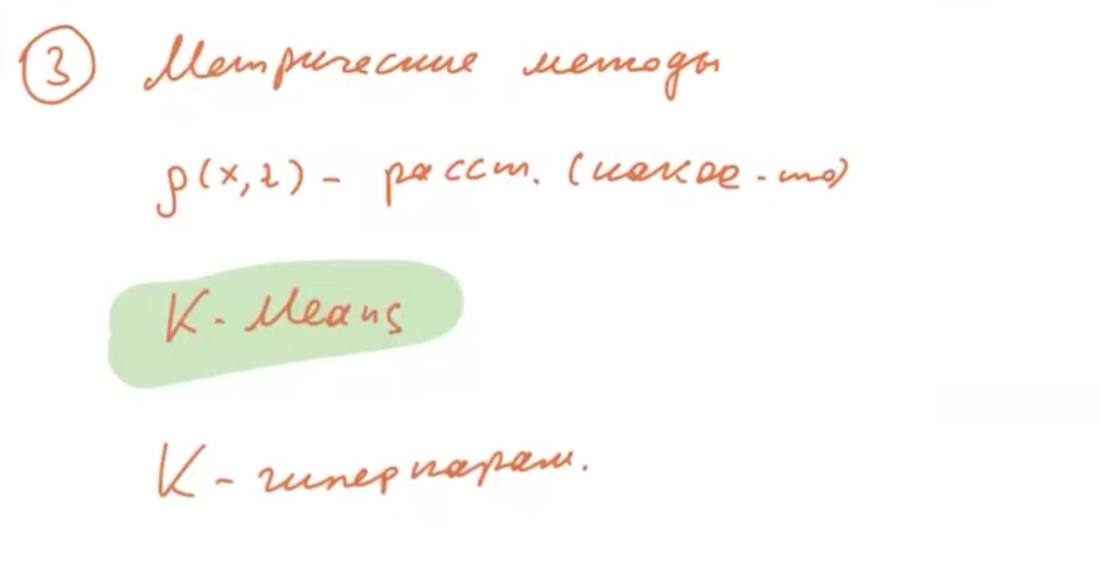 3 Метрические методы
ρ(x, z) - расст. (какое-то)
K-Means
K - гиперпарам.